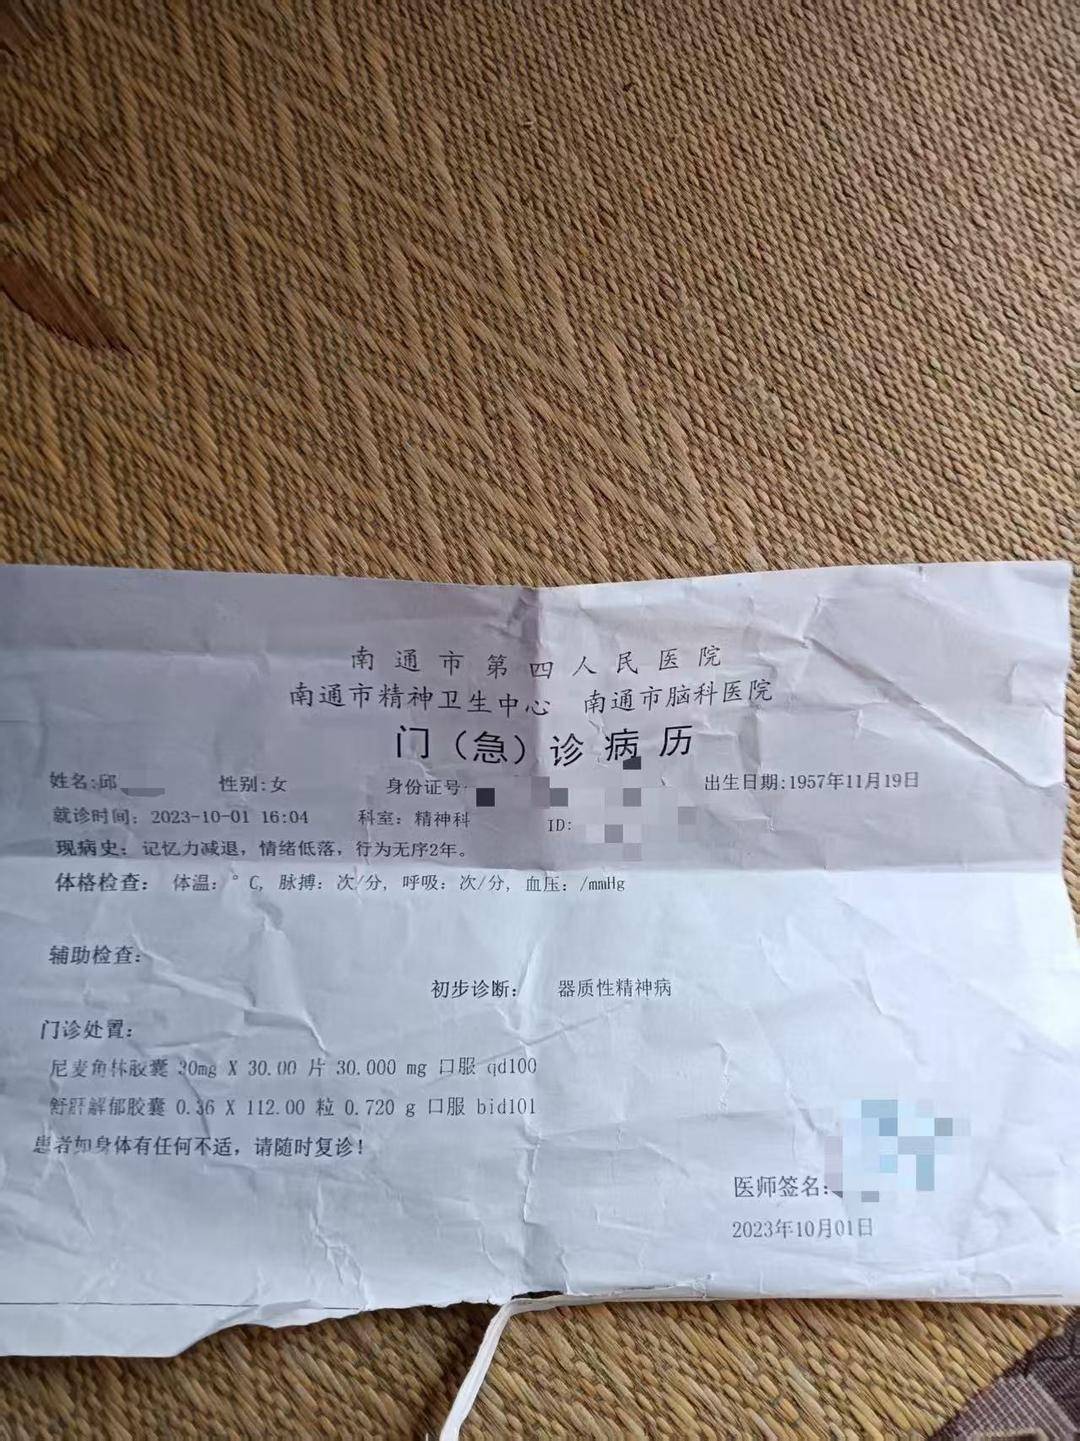 南通市第四人民医院
南通市精神卫生中心 南通市脑科医院
门（急）诊病历
姓名:邱 性别:女 身份证号 出生日期:1957年11月19日
就诊时间：2023-10-01 16:04 科室：精神科 ID:
现病史：记忆力减退，情绪低落，行为无序2年。
体格检查： 体温：°C, 脉搏：次/分, 呼吸：次/分, 血压：/mmHg
辅助检查：
初步诊断： 器质性精神病
门诊处置：
尼麦角林胶囊 30mg X 30.00 片 30.000 mg 口服 qd100
舒肝解郁胶囊 0.36 X 112.00 粒 0.720 g 口服 bid101
患者如身体有任何不适，请随时复诊！
医师签名：
2023年10月01日